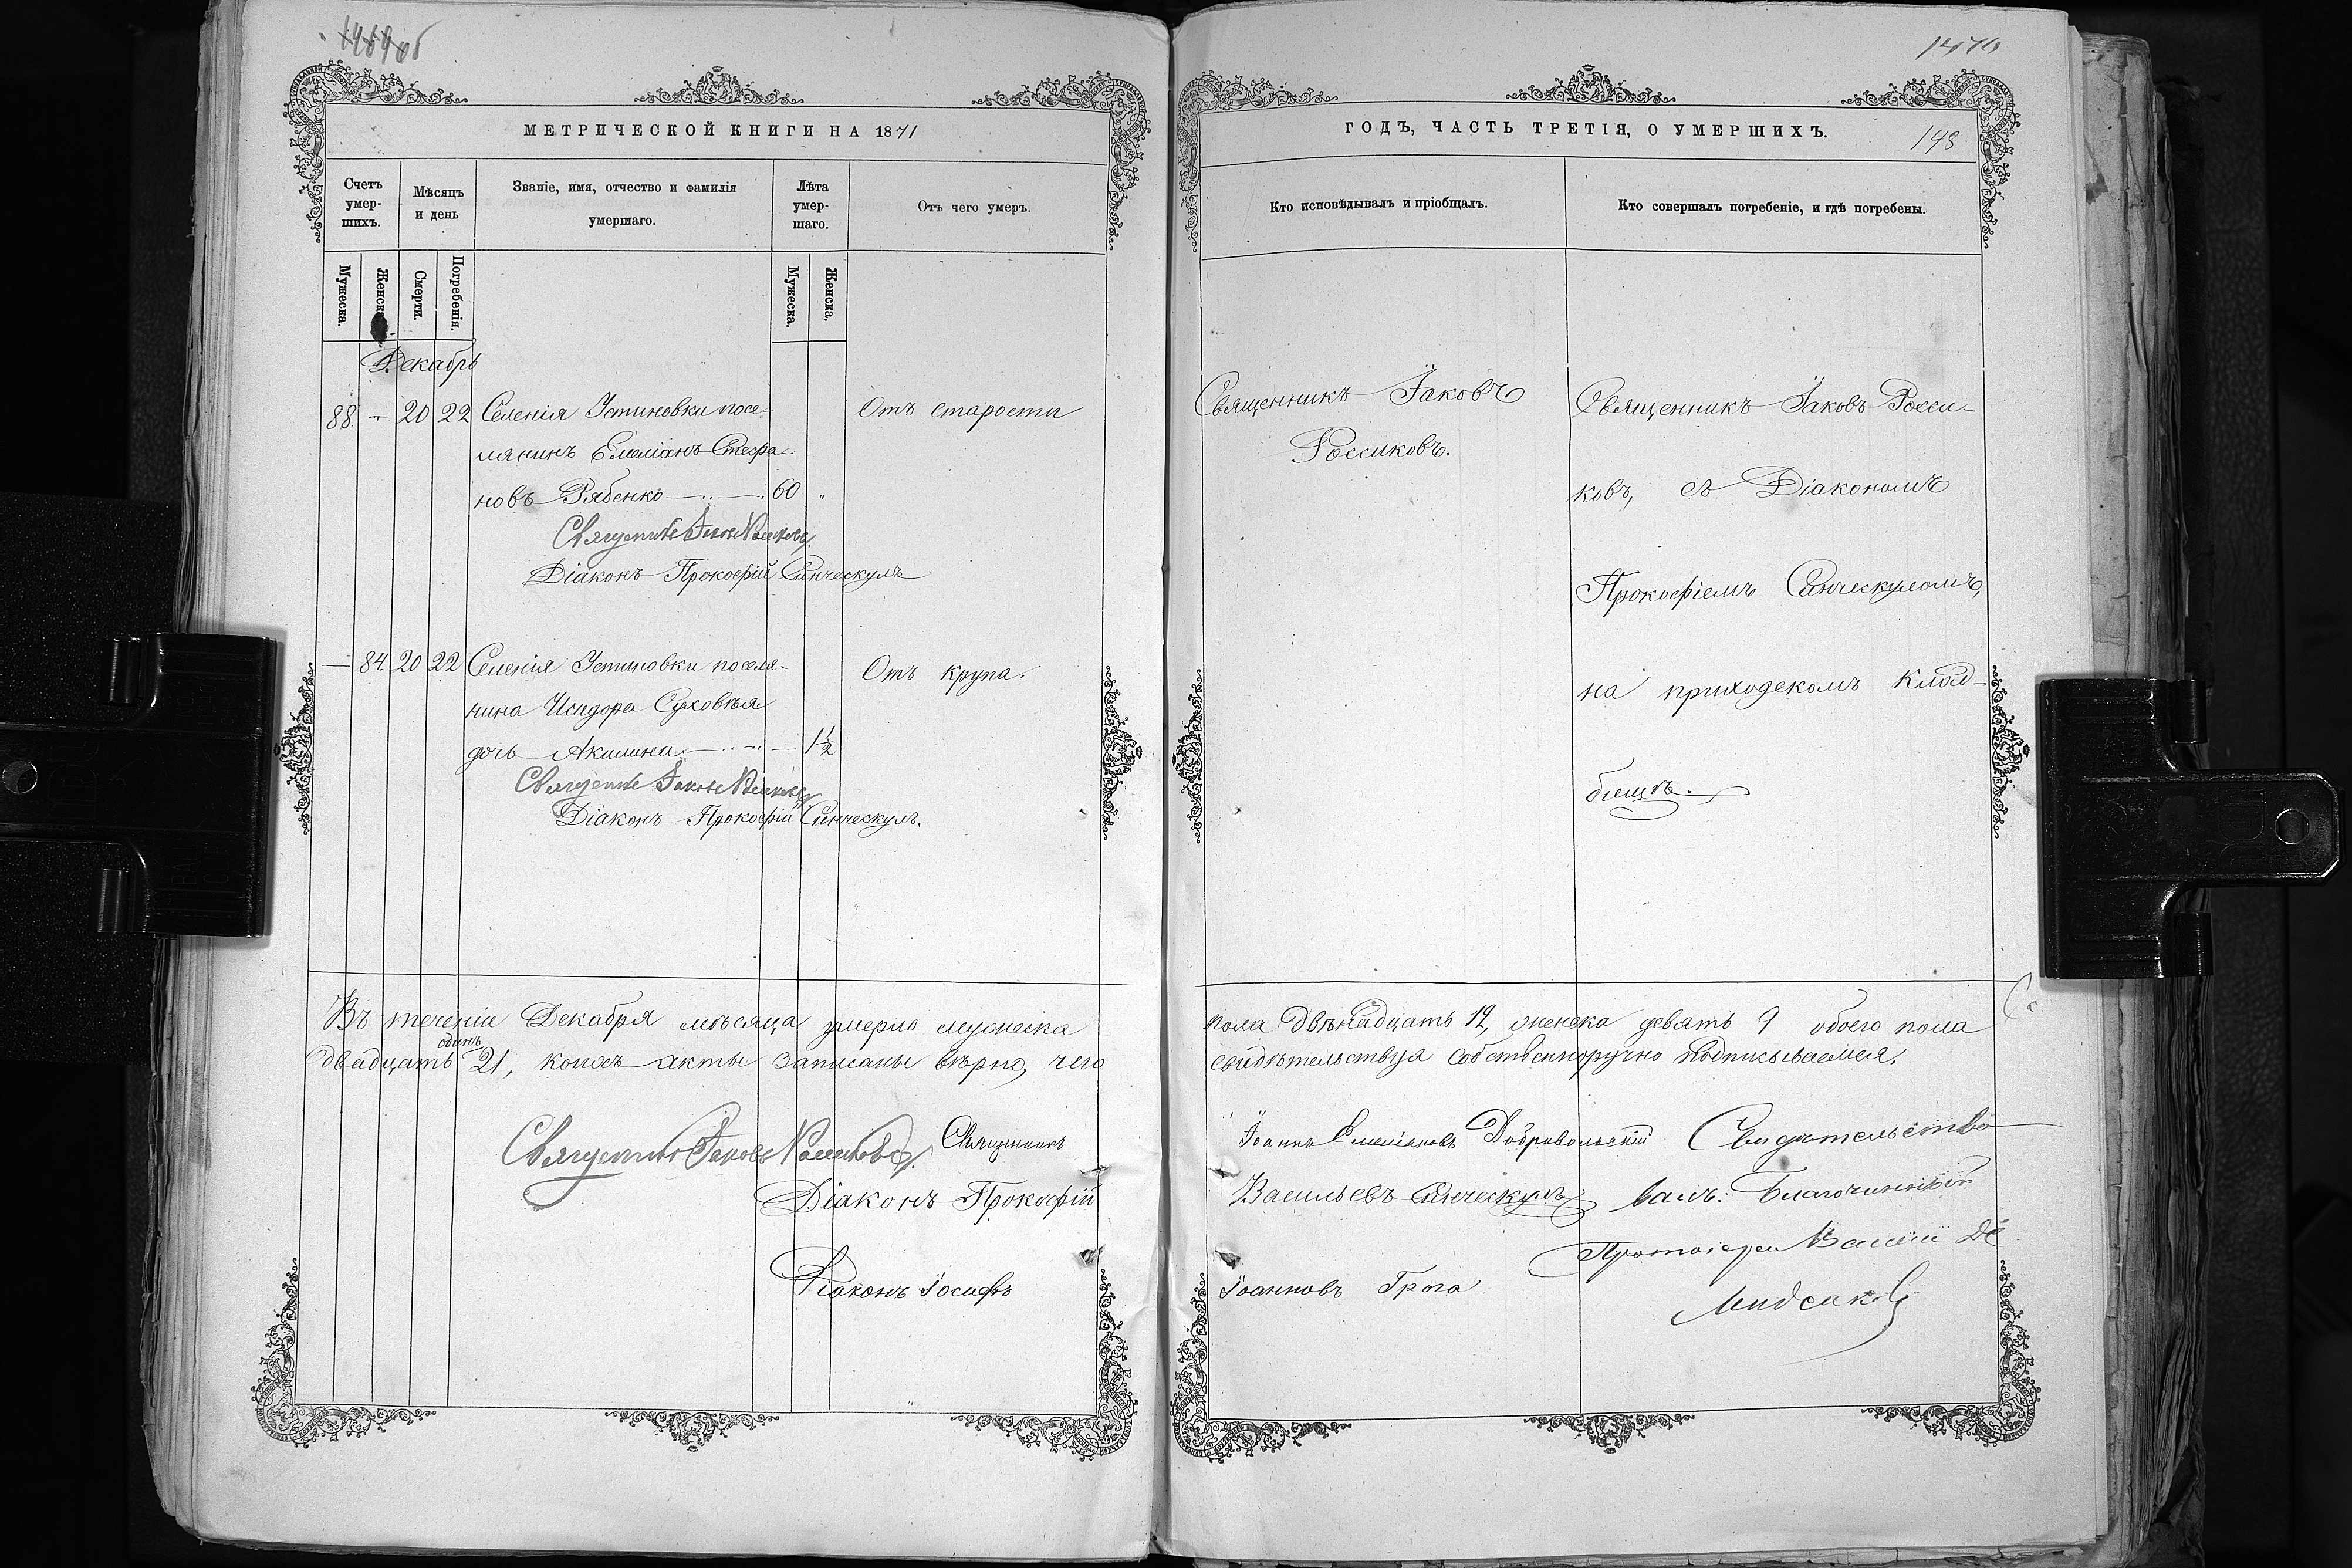 1476
МЕТРИЧЕСКОЙ КНИГИ НА 1871
ГОДЪ, ЧАСТЬ ТРЕТІЯ, О УМЕРШИХЪ.
148
Счетъ умер-шихъ.
Мѣсяцъ и день
Званіе, имя, отчество и фамилія умершаго.
Лѣта умер-шаго.
Отъ чего умеръ.
Кто исповѣдывалъ и пріобщалъ.
Кто совершалъ погребеніе, и гдѣ погребены.
Мужеска.
Женска
Смерти.
Погребенія.
Мужеска.
Женска.
Декабрь
88. — 20 22 Селенія Устиновки посе-
лянинъ Емеліанъ Стефа-
новъ Рябенко 60 "
Отъ старости
Священникъ Іаковъ Россиковъ
Діаконъ Прокофій Синческулъ
— 84. 20 22 Селенія Устиновки поселя-
нина Исидора Суховѣя
дочь Акилина — 1½
Отъ крупа.
Священникъ Іаковъ Россиковъ
Діаконъ Прокофій Синческулъ.
Священникъ Іаковъ
Россиковъ.
Священникъ Іаковъ Росси-
ковъ, съ Діакономъ
Прокофіемъ Синческуломъ,
на приходскомъ клад-
бищѣ.
Въ теченіи Декабря мѣсяца умерло мужеска
пола двѣнадцать 12, женска девять 9 обоего пола
двадцать одинъ 21, коихъ акты записаны вѣрно, чего
свидѣтельствуя собственноручно подписываемся.
Священникъ Іаковъ Россиковъ. Священникъ
Іоаннъ Емеліановъ Добровольскій
Діаконъ Прокофій
Васильевъ Синческулъ
Діаконъ Іосифъ
Іоанновъ Грога
Свидѣтельство
валъ: Благочинный
Протоіерей Василій